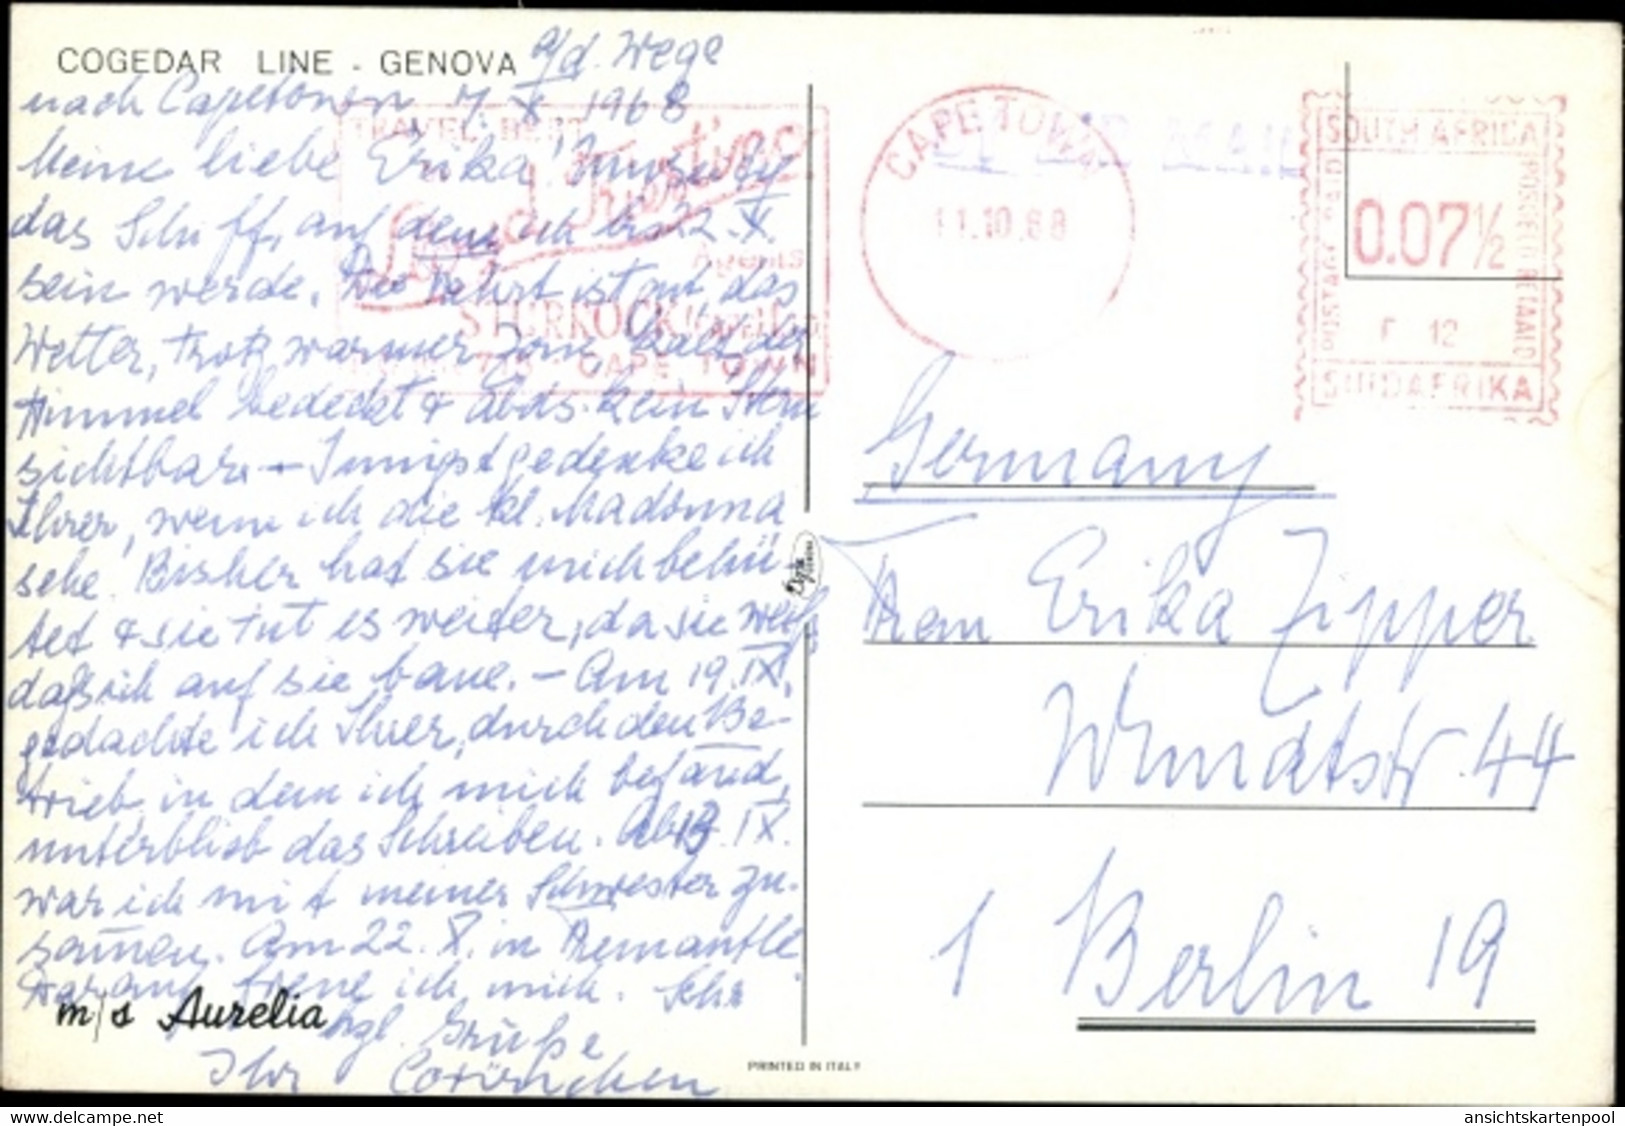 COGEDAR LINE - GENOVA a/d. Wege
nach Capetown, 7. X 1968
Meine liebe Erika! Umseitig
das Schiff, auf dem ich bis 22. X.
sein werde. Die Fahrt ist gut das
Wetter, trotz warmer Zone kalt der
Himmel bedeckt & abds. kein Stern
sichtbar. - Innigst gedenke ich
Ihrer, wenn ich die kl. Madonna
sehe. Bisher hat sie mich behü-
tet & sie tut es weiter, da sie weiß,
daß ich auf sie baue. - Am 19. IX.
gedachte ich Ihrer, durch den Be-
trieb, in dem ich mich befand,
unterblieb das Schreiben. Ab 13. IX.
war ich mit meiner Schwester zu-
sam̄en. Am 22. X. in Fremantle.
Darauf freue ich mich. Sehr
m/s Aurelia
hzgl. Grüße
Ihr
TRAVEL BEST
Lloyd Triestino
Agents
STURROCK
CAPE TOWN
CAPE TOWN
11.10.68
BY AIR MAIL
SOUTH AFRICA
POSTAGE PAID
POSGELD BETAALD
0.07½
F 12
SUIDAFRIKA
Germany
Frau Erika Zipper
Wundtstr. 44
1 Berlin 19
PRINTED IN ITALY
www.delcampe.net
ansichtskartenpool